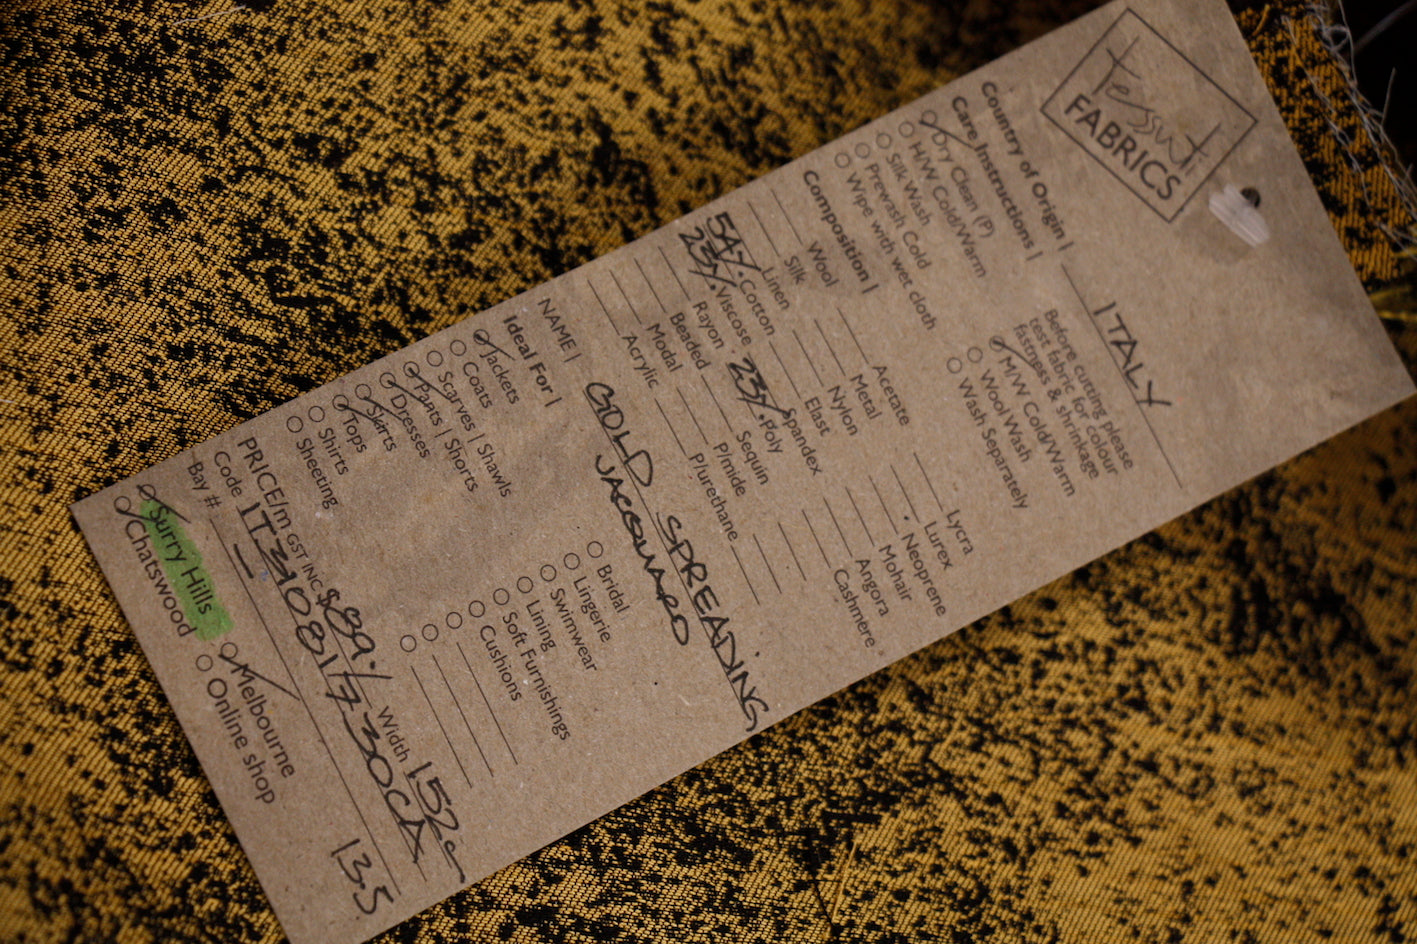 Tessuti
FABRICS
Country of Origin | ITALY
Care Instructions | Before cutting please
test fabric for colour
fastness & shrinkage
Dry Clean (P) M/W Cold/Warm
H/W Cold/Warm Wool Wash
Silk Wash Wash Separately
Prewash Cold
Wipe with wet cloth
Composition |
Wool Acetate Lycra
Silk Metal Lurex
Linen Nylon Neoprene
54% Cotton Elast Mohair
23% Viscose Spandex Angora
Rayon 23% Poly Cashmere
Beaded Sequin
Modal P/mide
Acrylic Plurethane
NAME | GOLD SPREADING
JACQUARD
Ideal For |
Jackets Bridal
Coats Lingerie
Scarves | Shawls Swimwear
Pants | Shorts Lining
Dresses Soft Furnishings
Skirts Cushions
Tops
Shirts
Sheeting
PRICE/m GST INC $89./ Width 152c
Code
Bay # 13.5
Surry Hills Melbourne
Chatswood Online shop